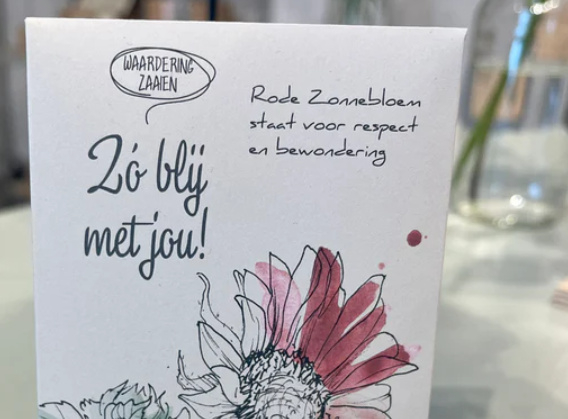 WAARDERING
ZAAIEN
Zó blij
met jou!
Rode Zonnebloem
staat voor respect
en bewondering